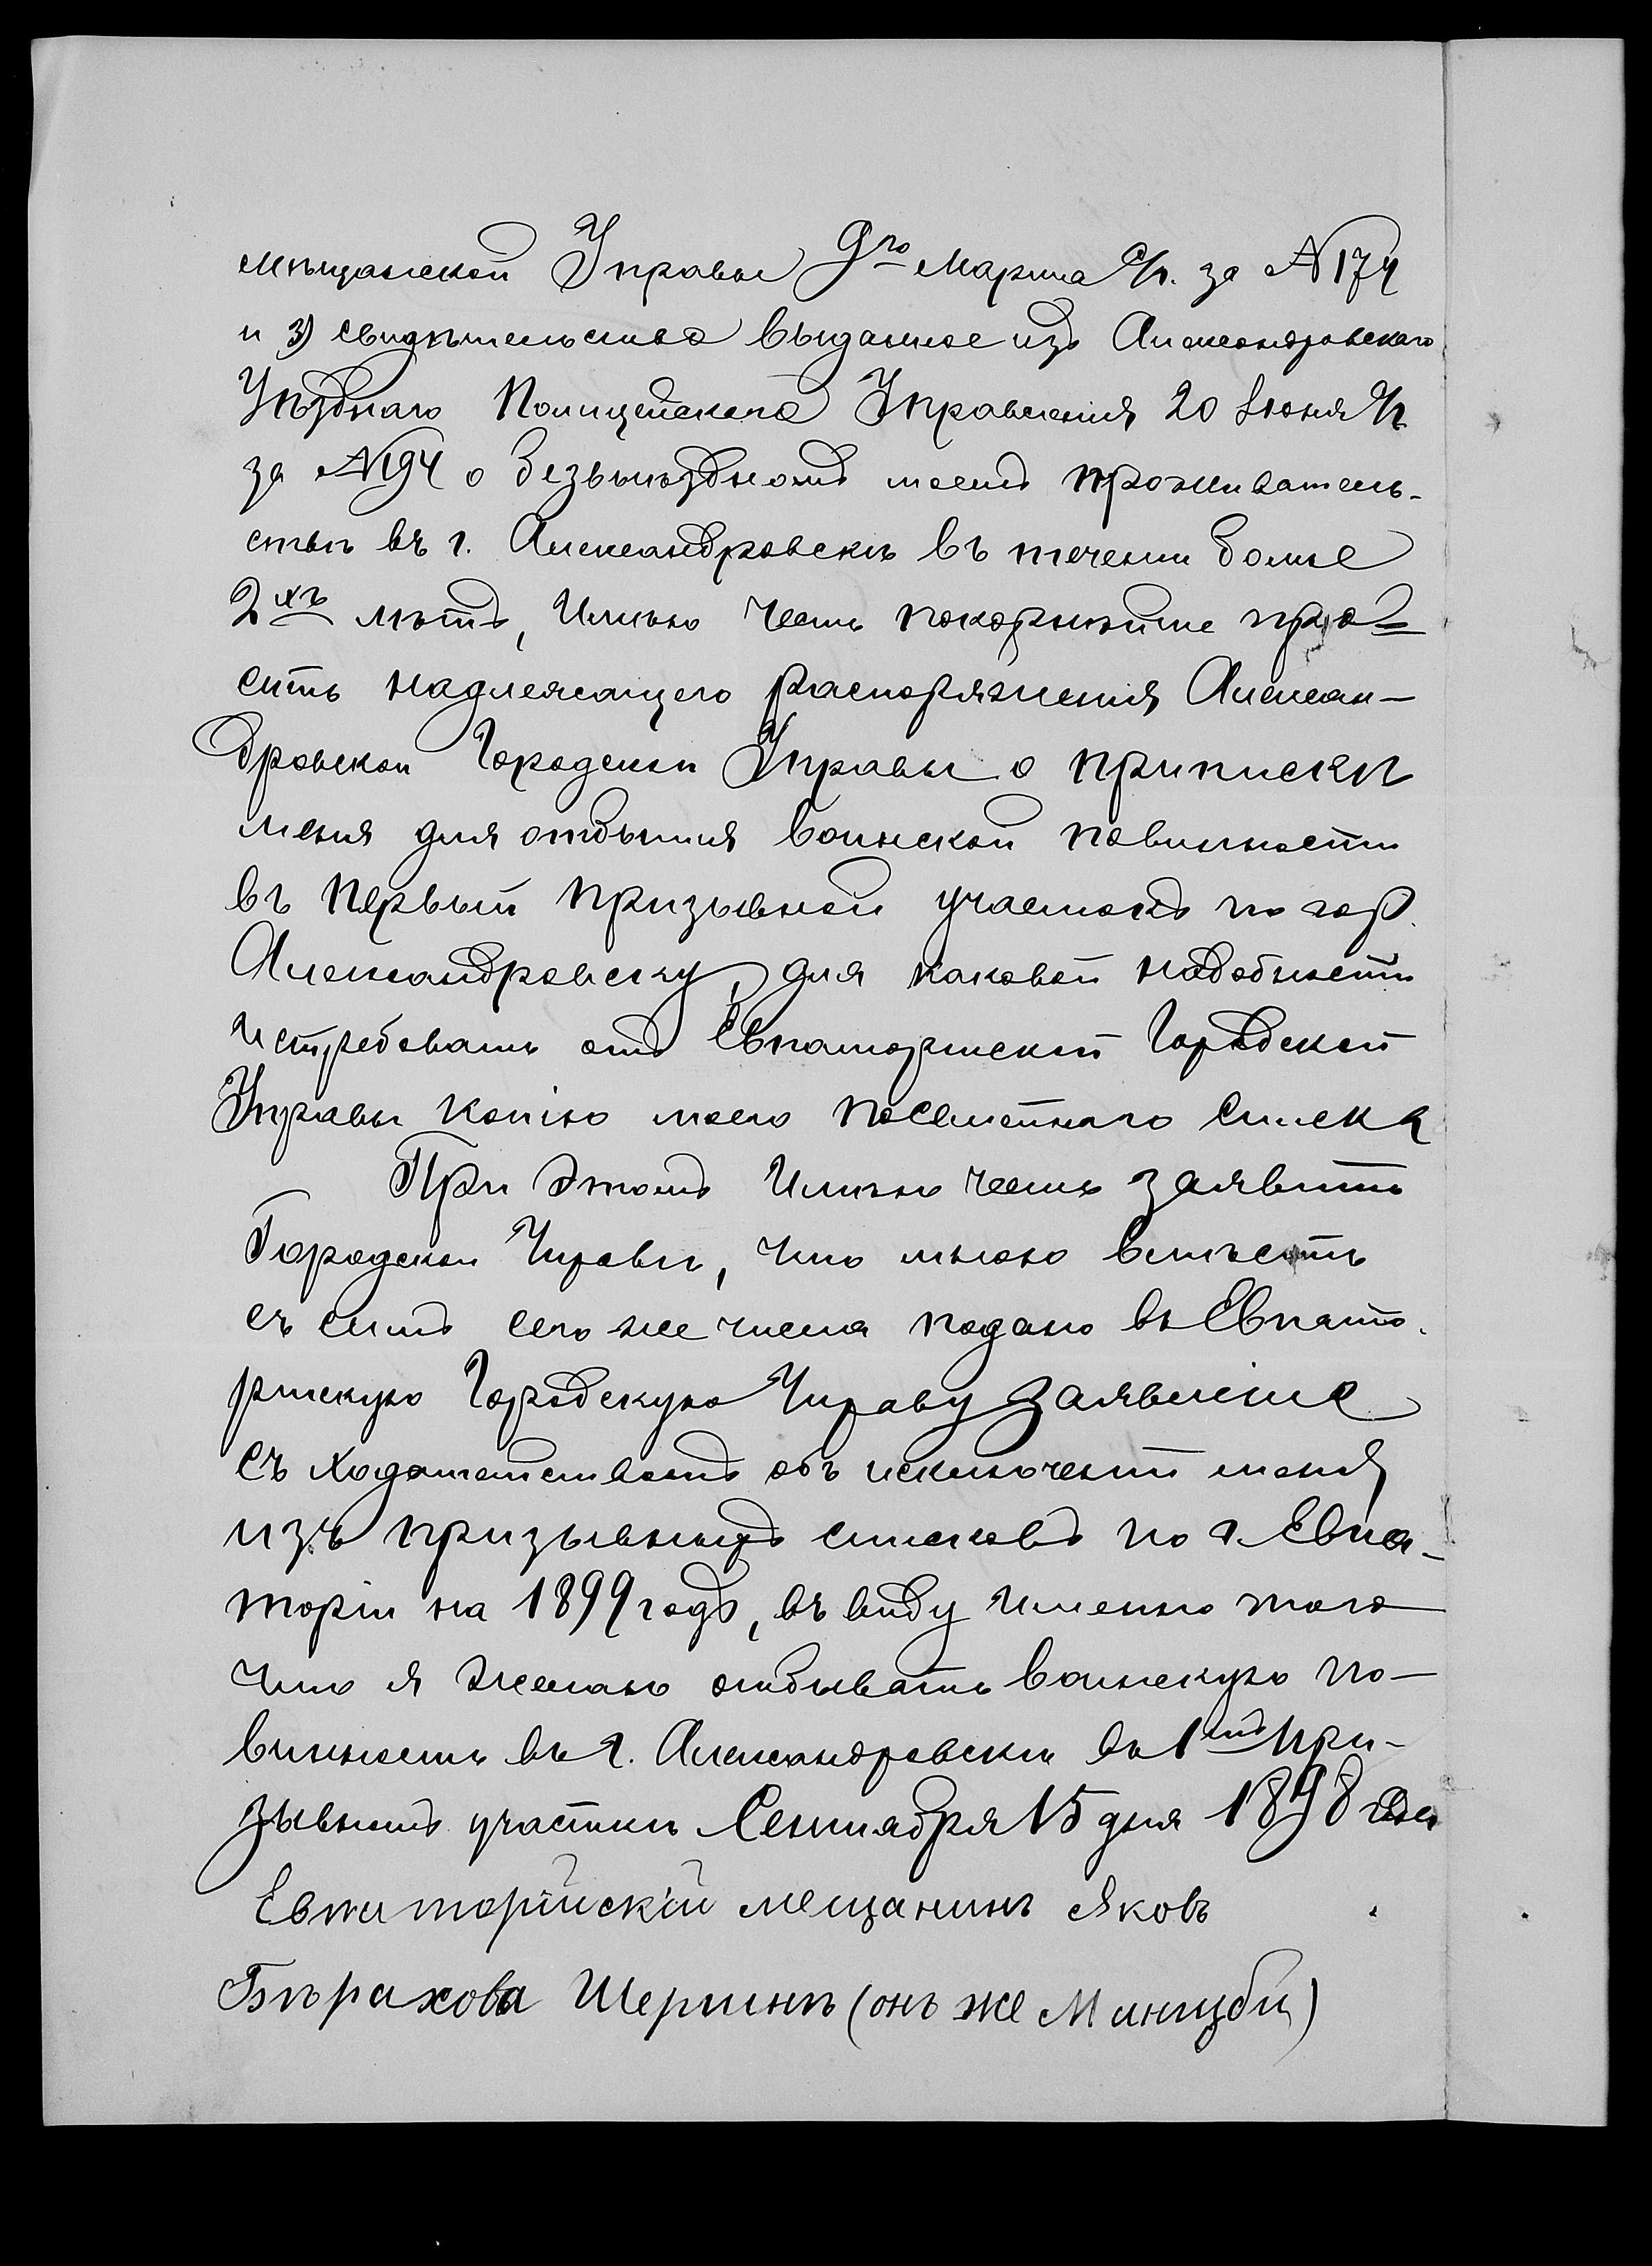 мѣщанской Управы 9го Марта с/г. за №174
и 3) свидѣтельство выданное изъ Александровскаго
Уѣзднаго Полицейскаго Управленія 20 Іюня с/г
за №194 о безвыѣздномъ моемъ проживатель-
ствѣ въ г. Александровскѣ въ теченіи болѣе
2хъ лѣтъ, Имѣю честь покорнѣйше про=
сить надлежащего распоряженія Алексан-
дровской Городской Управы о припискѣ
меня для отбытія воинской повинности
въ первый призывной участокъ по гор.
Александровску, для каковой надобности
истребовать отъ Евпаторійской Городской
Управы копію моего посемейнаго списка
При этомъ Имѣю честь заявить
Городской Управѣ, что мною вмѣстѣ
съ симъ сего же числа подано въ Евпато-
рійскую Городскую Управу заявленіе
съ ходатайствомъ объ исключеніи меня
изъ призывныхъ списковъ по г. Евпа-
торіи на 1899 годъ, въ виду именно того
что я желаю отбывать воинскую по-
винность въ г. Александровскѣ въ 1мъ при-
зывномъ участкѣ Сентября 15 дня 1898 года
Евпаторійскій мещанинъ Яковъ
Бѣрахова Шерминъ (онъ же )